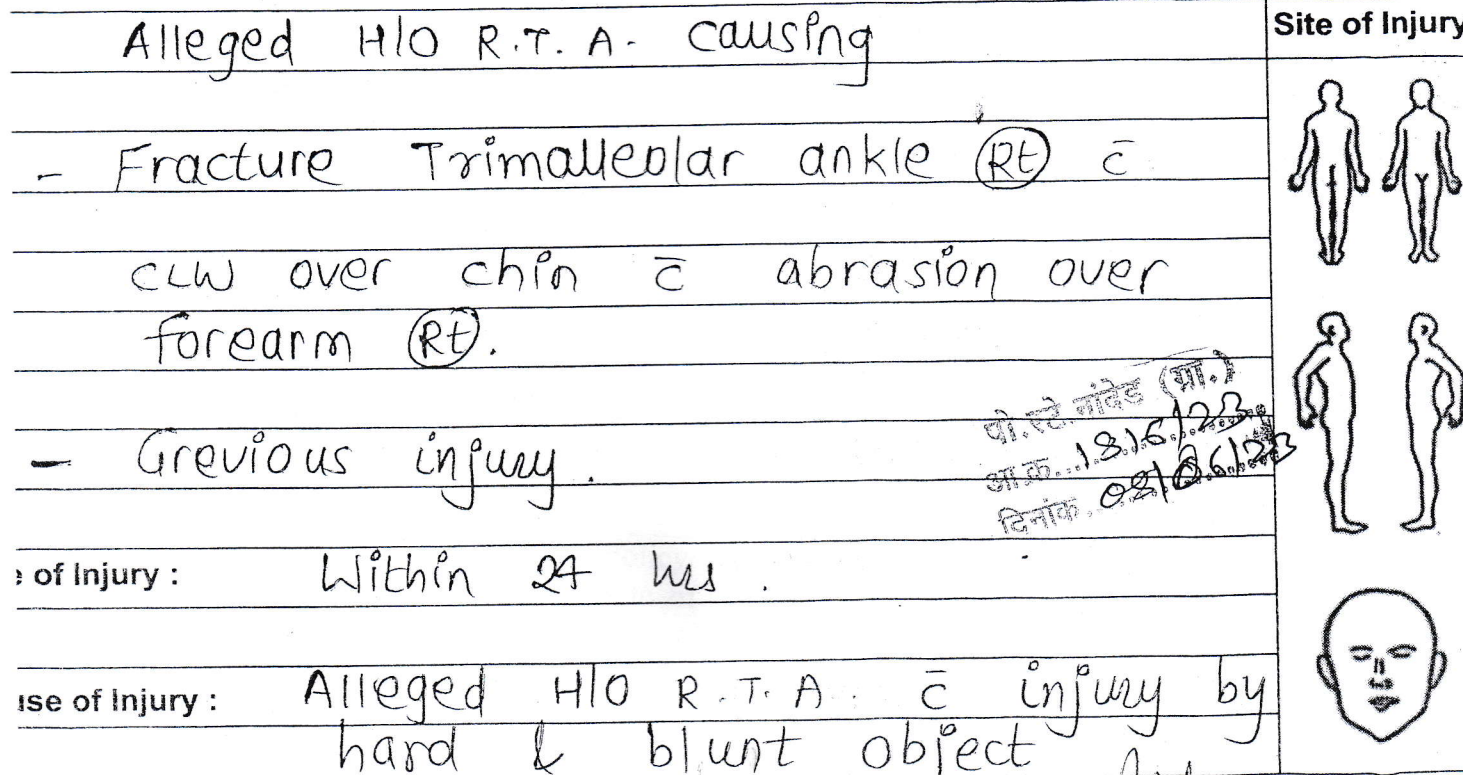 Site of Injury
Alleged H/O R.T.A. causing
- Fracture Trimalleolar ankle Rt c̄
CLW over chin c̄ abrasion over
forearm Rt.
- Grevious injury.
पो.स्टे.नांदेड (ग्रा.)
आ.क्र.
दिनांक
e of Injury : Within 24 hrs.
use of Injury : Alleged H/O R.T.A. c̄ injury by
hard & blunt object